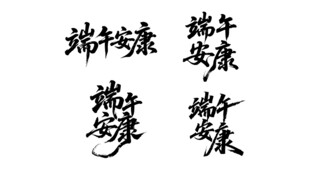 端午安康
端午
安康
端午
安康
端午
安康